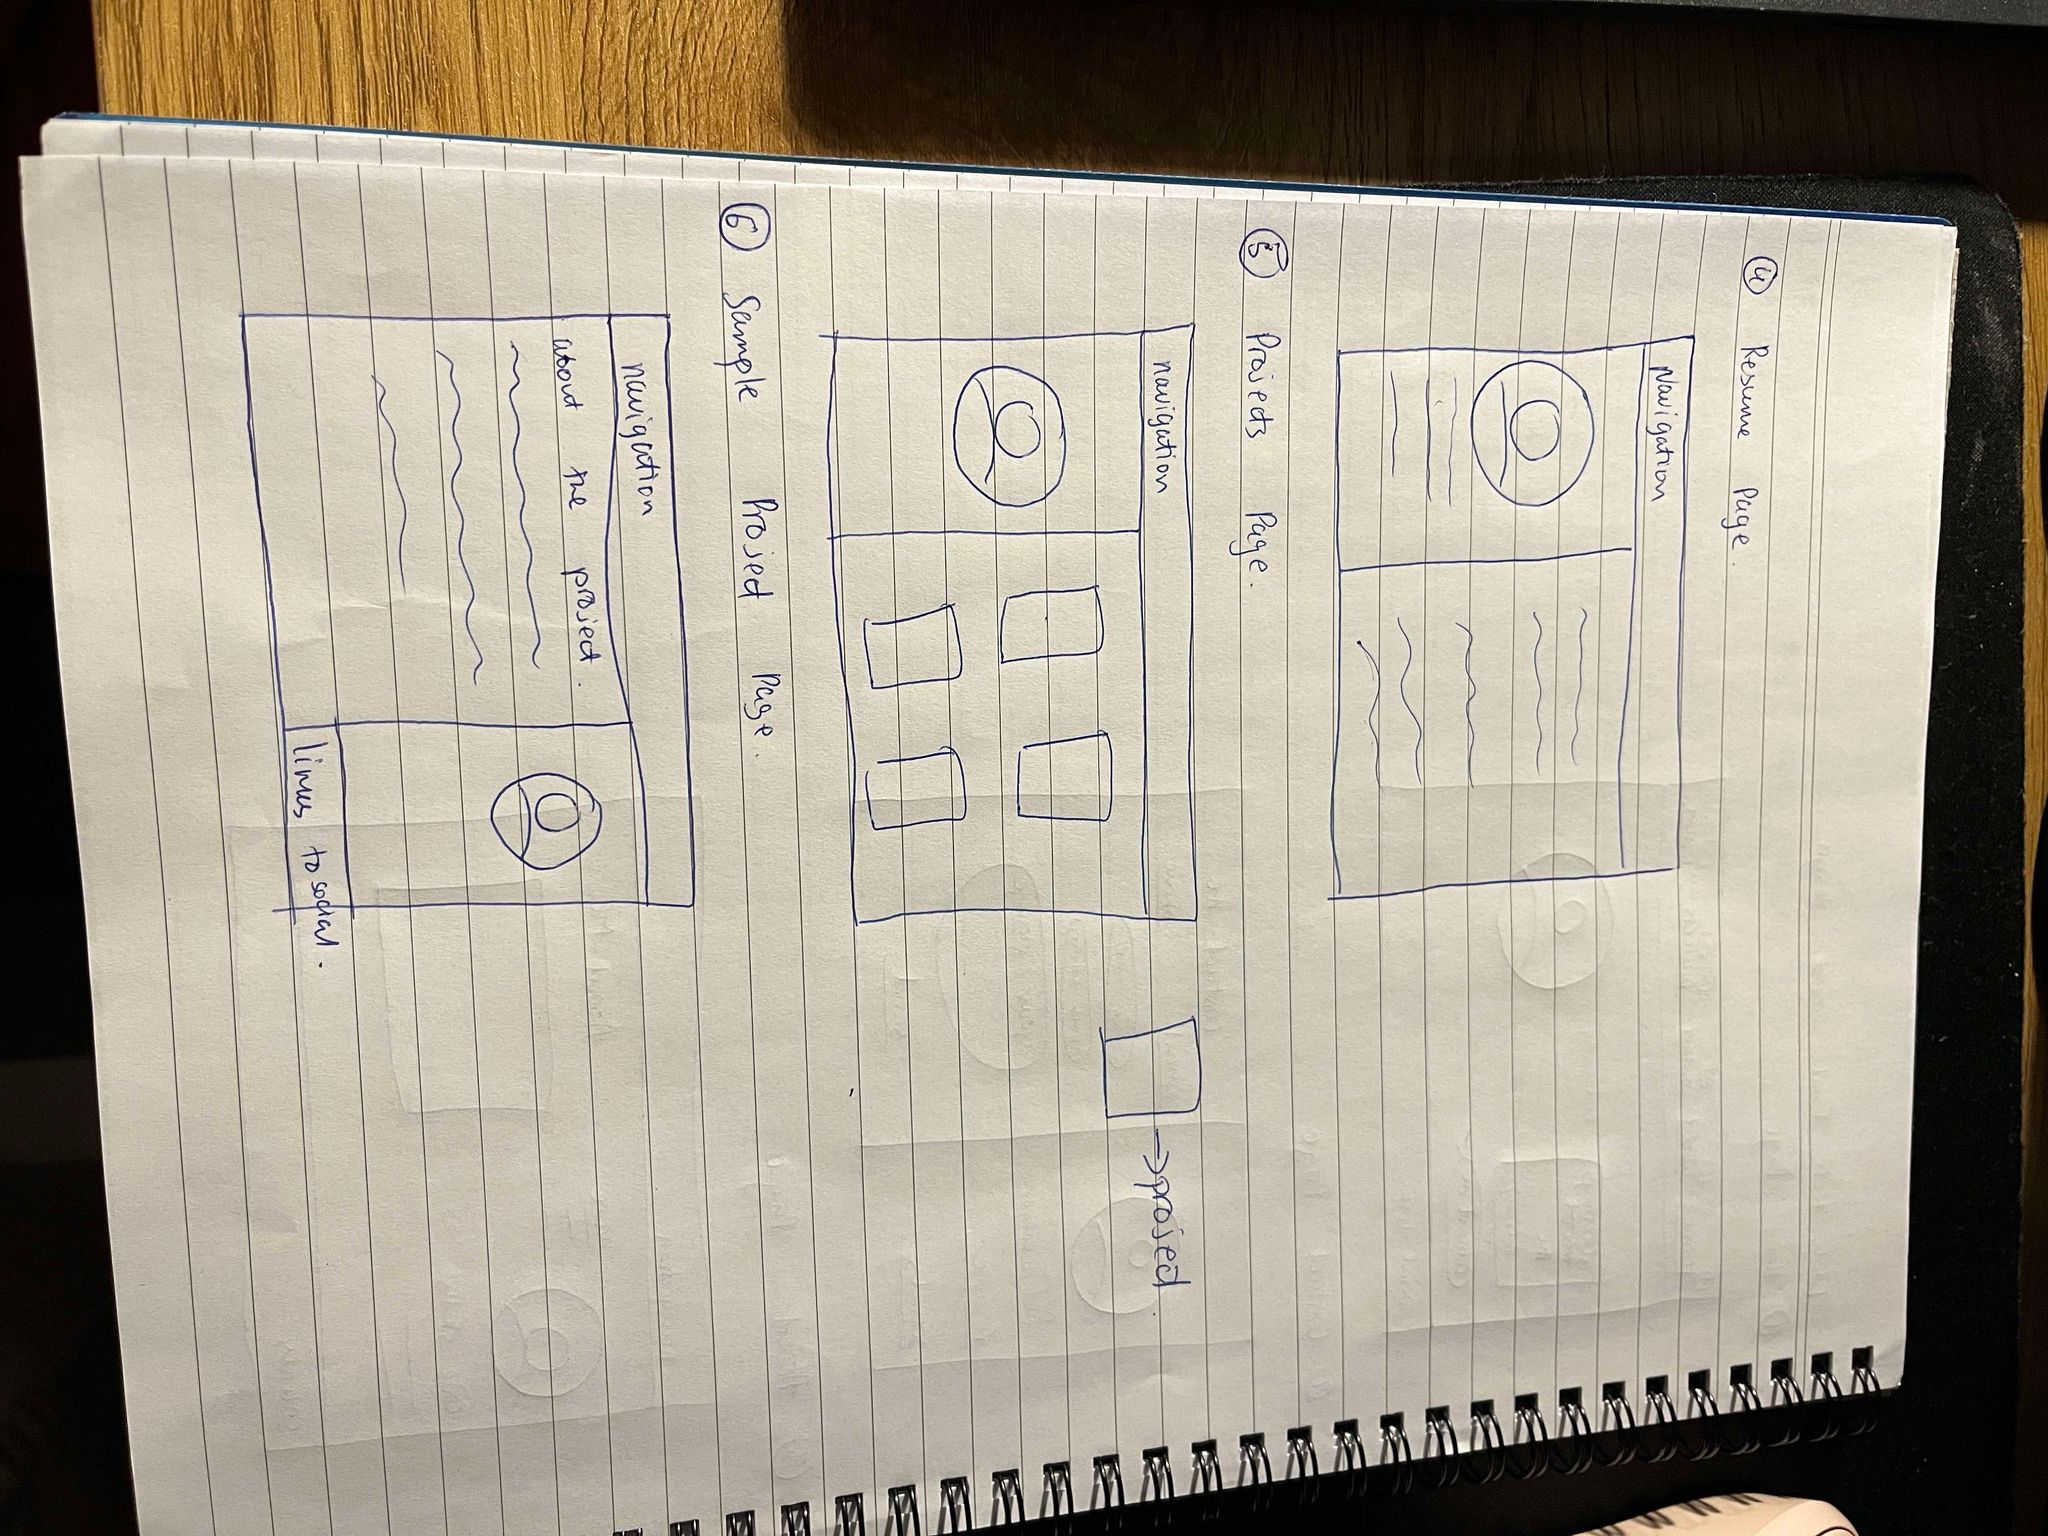 4 Resume Page.
Navigation
5 Projects Page.
navigation
→ project.
6 Sample Project Page.
navigation
about the project.
links to social.